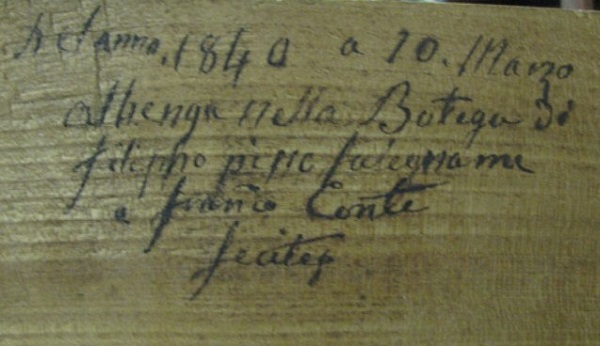 Nel anno, 1840 a 10. Marzo
Albenga nella Botega di
filippo pisso falegname
a franco Conte
fecitep